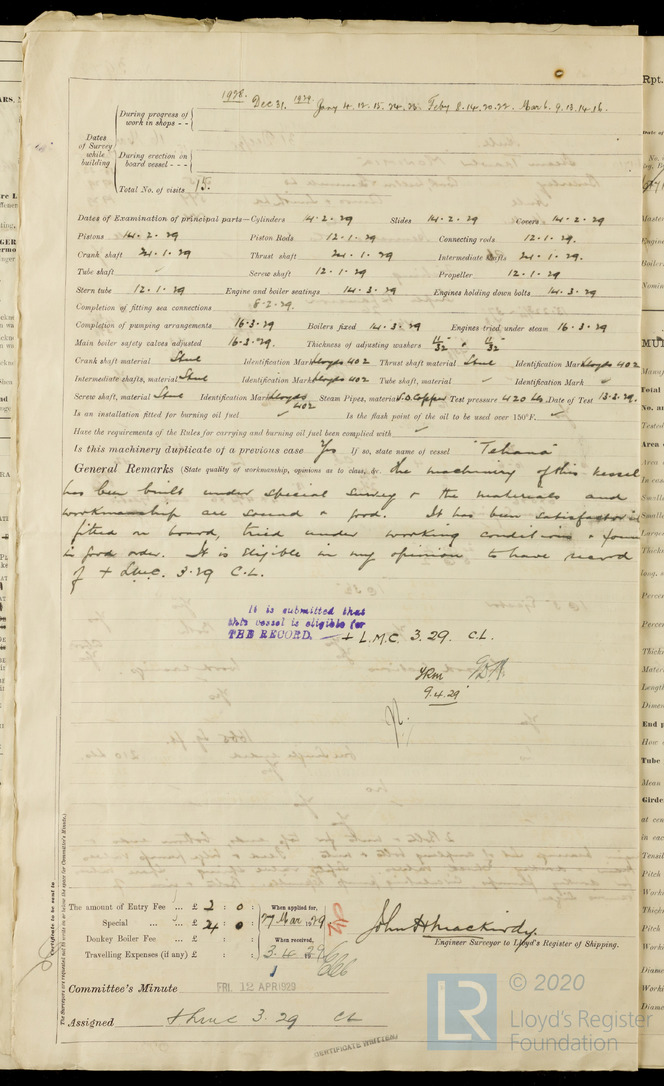 1928. Dec. 31. 1929. Jany 4. 12. 15. 24. 28. Feby 8. 14. 20. 22. Mar 6. 9. 13. 14. 16.
Dates of Survey while building
During progress of work in shops - -
During erection on board vessel - - -
Total No. of visits 15.
Dates of Examination of principal parts—Cylinders 14. 2. 29 Slides 14. 2. 29 Covers 14. 2. 29
Pistons 14. 2. 29 Piston Rods 12. 1. 29 Connecting rods 12. 1. 29.
Crank shaft 24. 1. 29 Thrust shaft 24. 1. 29 Intermediate shafts 24. 1. 29.
Tube shaft ✓ Screw shaft 12. 1. 29 Propeller 12. 1. 29
Stern tube 12. 1. 29 Engine and boiler seatings 14. 3. 29 Engines holding down bolts 14. 3. 29
Completion of fitting sea connections 8. 2. 29.
Completion of pumping arrangements 16. 3. 29 Boilers fixed 14. 3. 29 Engines tried under steam 16. 3. 29
Main boiler safety valves adjusted 16. 3. 29. Thickness of adjusting washers
Crank shaft material Steel Identification Mark Lloyds 402 Thrust shaft material Steel Identification Mark Lloyds 402
Intermediate shafts, material Steel Identification Mark Lloyds 402 Tube shaft, material ✓ Identification Mark ✓
Screw shaft, material Steel Identification Mark Lloyds 402 Steam Pipes, material S.D. Copper Test pressure 420 lbs Date of Test 13. 3. 29.
Is an installation fitted for burning oil fuel ✓ Is the flash point of the oil to be used over 150°F. ✓
Have the requirements of the Rules for carrying and burning oil fuel been complied with ✓
Is this machinery duplicate of a previous case Yes If so, state name of vessel "Tehana"
General Remarks (State quality of workmanship, opinions as to class, &c. The machinery of this vessel
has been built under special survey & the materials and
workmanship are sound & good. It has been
fitted on board, tried under working conditions &
in good order. It is eligible in my opinion to have record
of + L.M.C. 3.29 C.L.
It is submitted that
this vessel is eligible for
THE RECORD. + L.M.C. 3. 29. C.L.
9.4.29
Certificate to be sent to
The Surveyors are requested not to write on or below the space for Committee's Minute.
The amount of Entry Fee ... £ 2 : 0 : When applied for,
Special ... ... £ 24 : 0 : 27 Mar 1929
Donkey Boiler Fee ... £ : : When received,
Travelling Expenses (if any) £ : : 3. 4. 29
John H Mackirdy.
Engineer Surveyor to Lloyd's Register of Shipping.
Committee's Minute FRI. 12 APR 1929
Assigned + LMC 3. 29 CL
CERTIFICATE WRITTEN
© 2020
LR
Lloyd's Register
Foundation